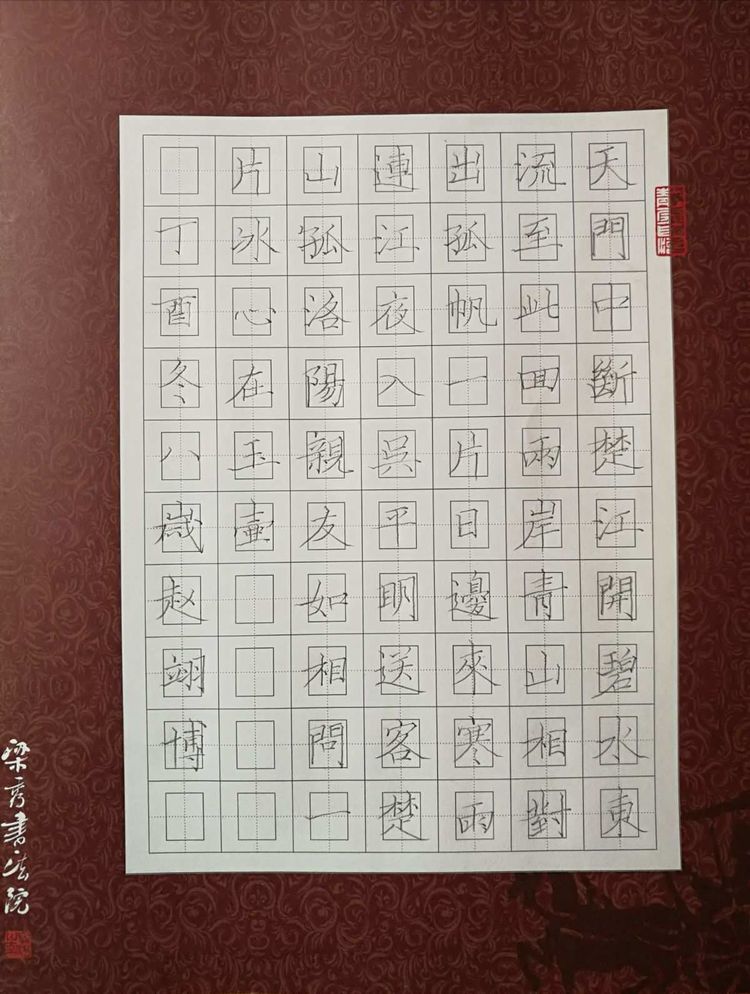 天門中斷楚江開碧水東
流至此回兩岸青山相對
出孤帆一片日邊來寒雨
連江夜入吳平明送客楚
山孤洛陽親友如相問一
片冰心在玉壺
丁酉冬八歲赵翊博
梁秀書法院